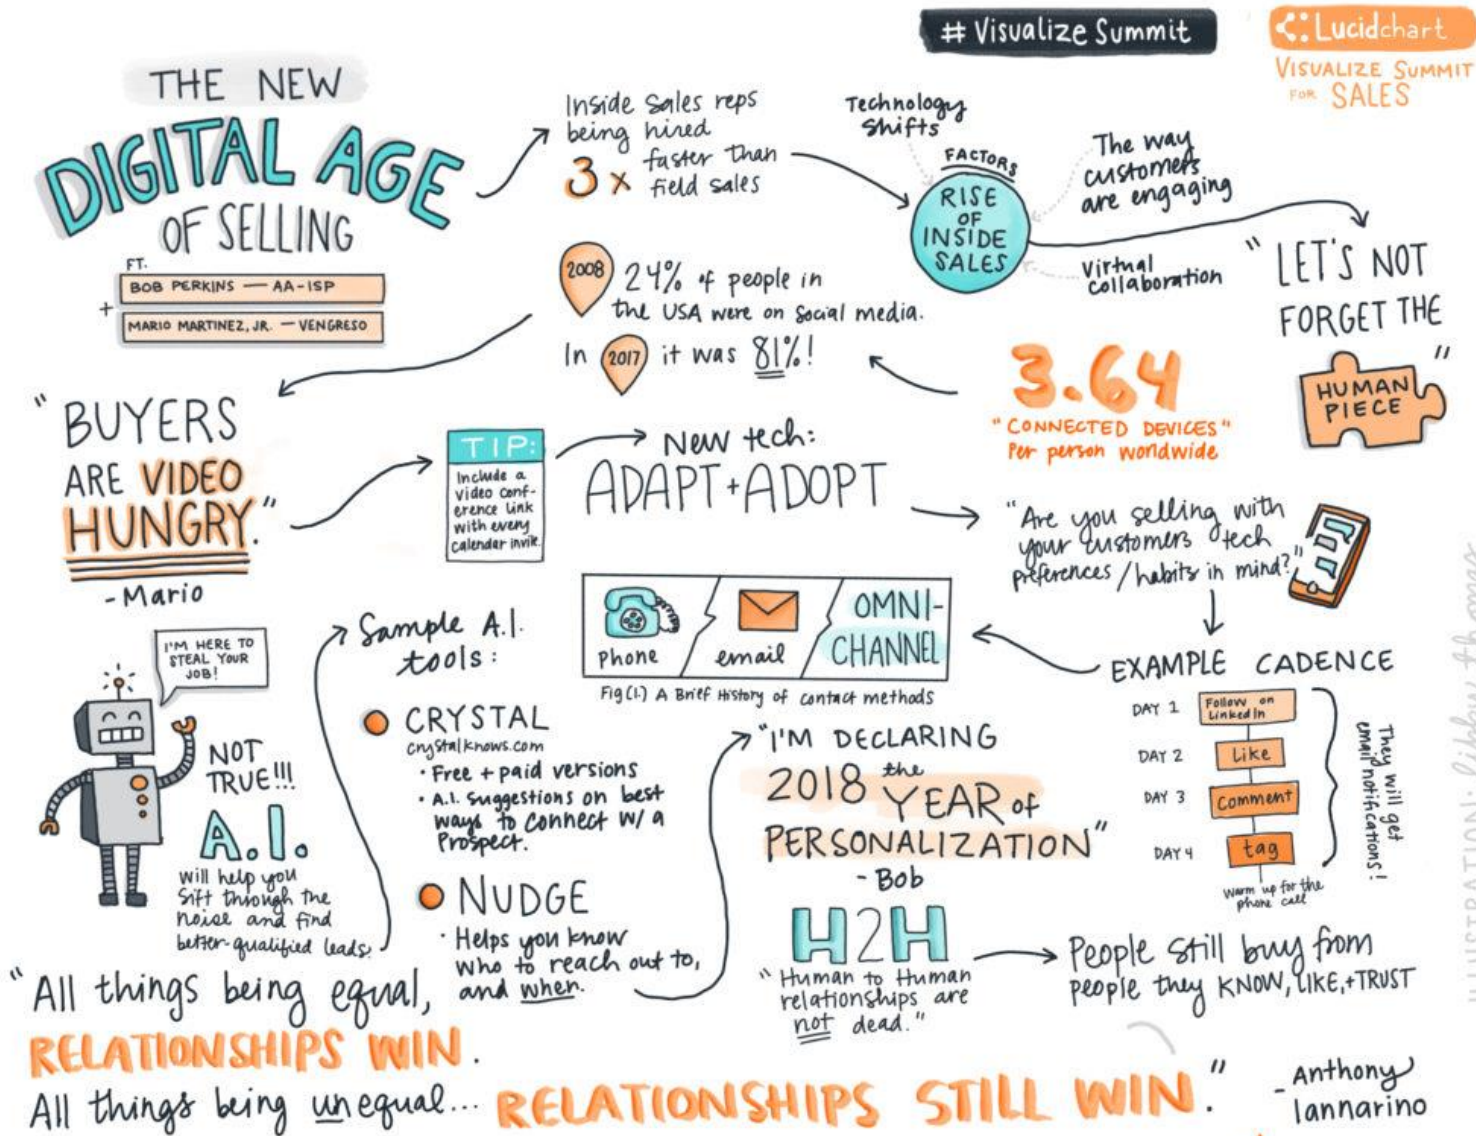 # Visualize Summit
Lucidchart
VISUALIZE SUMMIT
FOR SALES
THE NEW
DIGITAL AGE
OF SELLING
FT.
BOB PERKINS — AA-ISP
+
MARIO MARTINEZ, JR. — VENGRESO
Inside Sales reps
being hired
3x faster than
field sales
Technology
Shifts
FACTORS
RISE
OF
INSIDE
SALES
The way
customers
are engaging
Virtual
collaboration
"LET'S NOT
FORGET THE
HUMAN
PIECE"
3.64
"CONNECTED DEVICES"
Per person worldwide
2008 24% of people in
the USA were on Social media.
In 2017 it was 81%!
"BUYERS
ARE VIDEO
HUNGRY."
- Mario
TIP:
Include a
video conf-
erence link
with every
calendar invite.
New tech:
ADAPT + ADOPT
"Are you selling with
your customers tech
preferences / habits in mind?"
EXAMPLE CADENCE
DAY 1 Follow on
LinkedIn
DAY 2 Like
DAY 3 Comment
DAY 4 tag
Warm up for the
phone call
They will get
email notifications!
Phone
email
OMNI-
CHANNEL
Fig (1.) A Brief History of contact methods
I'M HERE TO
STEAL YOUR
JOB!
NOT
TRUE!!!
A.I.
will help you
Sift through the
noise and find
better-qualified leads.
Sample A.I.
tools:
CRYSTAL
crystalknows.com
· Free + paid versions
· A.I. Suggestions on best
ways to connect w/ a
Prospect.
NUDGE
· Helps you know
who to reach out to,
and when.
"I'M DECLARING
2018 the
YEAR of
PERSONALIZATION"
- Bob
H2H
"Human to Human
relationships are
not dead."
People still buy from
people they KNOW, LIKE, + TRUST
"All things being equal,
RELATIONSHIPS WIN.
All things being unequal... RELATIONSHIPS STILL WIN."
- Anthony
Iannarino